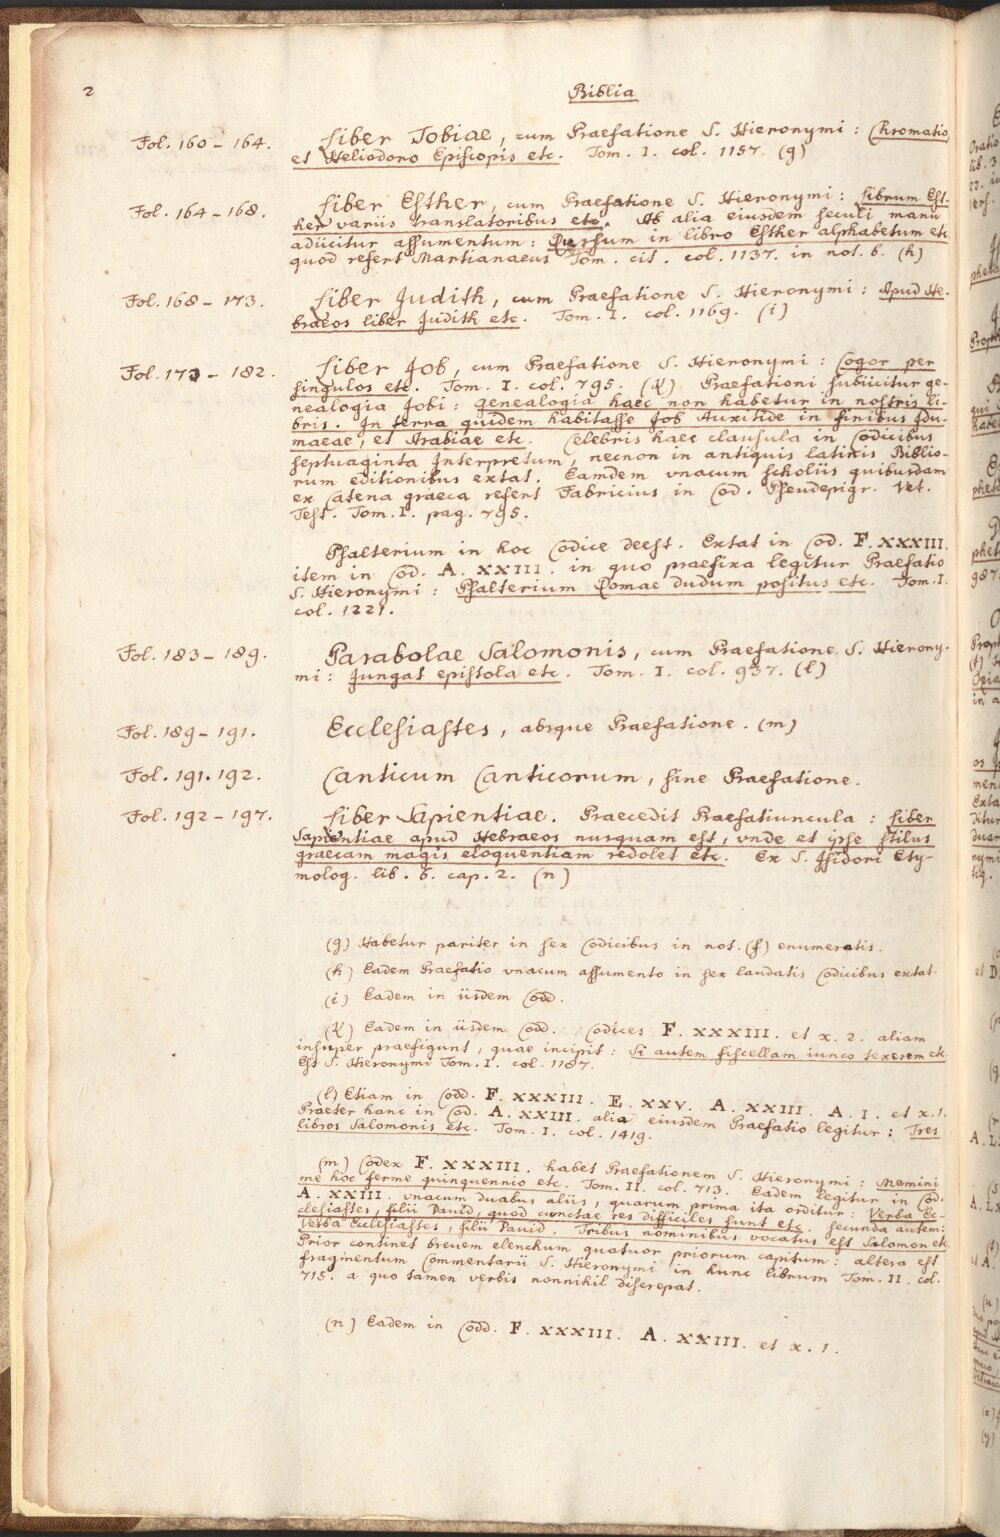 2
Biblia
Fol. 160 - 164.
Liber Tobiae, cum Praefatione S. Hieronymi : Chromatio
et Heliodoro Episcopis etc. Tom. I. col. 1157. (g)
Fol. 164 - 168.
Liber Esther, cum Praefatione S. Hieronymi : Librum Est-
her variis translatoribus etc. Ab alia eiusdem seculi manu
adiicitur assumentum : Rursum in libro Esther alphabetum etc
quod refert Martianaeus Tom. cit. col. 1137. in not. b. (h)
Fol. 168 - 173.
Liber Judith, cum Praefatione S. Hieronymi : Apud He-
braeos liber Judith etc. Tom. I. col. 1169. (i)
Fol. 173 - 182.
Liber Job, cum Praefatione S. Hieronymi : Cogor per
singulos etc. Tom. I. col. 795. (K) Praefationi subiicitur ge-
nealogia Jobi : genealogia haec non habetur in nostris li-
bris. In terra quidem habitasse Job Auxitide in finibus Idu-
maeae, et Arabiae etc. Celebris haec clausula in Codicibus
septuaginta Interpretum, necnon in antiquis latinis Biblio-
rum editionibus extat. Eamdem vnacum scholiis quibusdam
ex Catena graeca refert Fabricius in Cod. Pseudepigr. Vet.
Test. Tom. I. pag. 795.
Psalterium in hoc Codice deest. Extat in Cod. F. XXXIII.
item in Cod. A. XXIII. in quo praefixa legitur Praefatio
S. Hieronymi : Psalterium Romae dudum positus etc. Tom. I.
col. 1221.
Fol. 183 - 189.
Parabolae Salomonis, cum Praefatione S. Hierony-
mi : Jungat epistola etc. Tom. I. col. 937. (l)
Fol. 189 - 191.
Ecclesiastes, absque Praefatione. (m)
Fol. 191. 192.
Canticum Canticorum, sine Praefatione.
Fol. 192 - 197.
Liber Sapientiae. Praecedit Praefatiuncula : Liber
Sapientiae apud Hebraeos nusquam est, vnde et ipse stilus
graecam magis eloquentiam redolet etc. Ex S. Isidori Ety-
molog. lib. 6. cap. 2. (n)
(g) Habetur pariter in sex Codicibus in not. (f) enumeratis.
(h) Eadem Praefatio vnacum assumento in sex laudatis Codicibus extat.
(i) Eadem in iisdem Codd.
(K) Eadem in iisdem Codd. Codices F. XXXIII. et x. 2. aliam
insuper praefigunt, quae incipit : Si autem fiscellam iunco texerem etc.
Est S. Hieronymi Tom. I. col. 1187.
(l) Etiam in Codd. F. XXXIII. E. XXV. A. XXIII. A. I. et x. 1.
Praeter hanc in Cod. A. XXIII. alia eiusdem Praefatio legitur : Tres
libros Salomonis etc. Tom. I. col. 1419.
(m) Codex F. XXXIII. habet Praefationem S. Hieronymi : Memini
me hoc ferme quinquennio etc. Tom. II. col. 713. Eadem legitur in Cod.
A. XXIII. vnacum duabus aliis, quarum prima ita orditur : Verba Ec-
clesiastes, filii Dauid, quod cunctae res difficiles sunt etc. secunda autem:
Verba Ecclesiastes, filii Dauid. Tribus nominibus vocatus est Salomon etc.
Prior continet breuem elenchum quatuor priorum capitum : altera est
fragmentum Commentarii S. Hieronymi in hunc librum Tom. II. col.
715. a quo tamen verbis nonnihil discrepat.
(n) Eadem in Codd. F. XXXIII. A. XXIII. et x. 1.